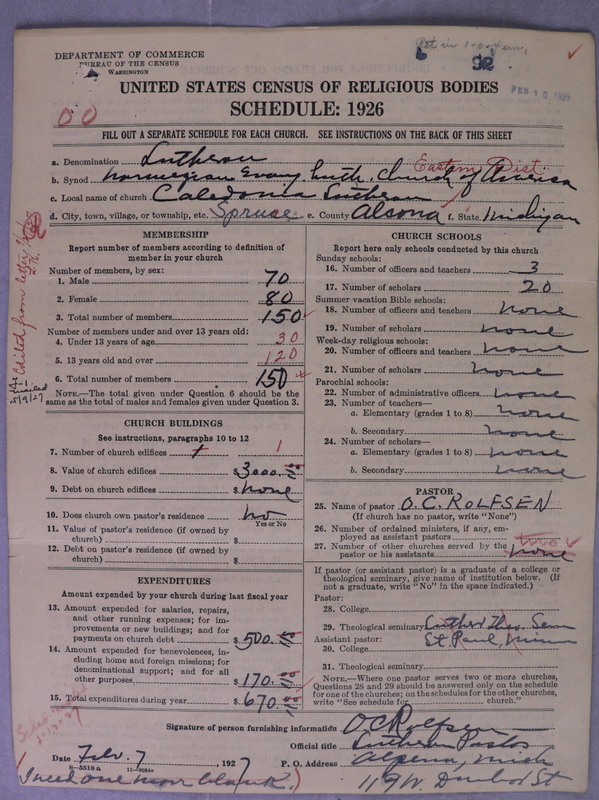 Put in
DEPARTMENT OF COMMERCE
BUREAU OF THE CENSUS
WASHINGTON
FEB 10
UNITED STATES CENSUS OF RELIGIOUS BODIES
SCHEDULE: 1926
00
FILL OUT A SEPARATE SCHEDULE FOR EACH CHURCH. SEE INSTRUCTIONS ON THE BACK OF THIS SHEET
a. Denomination Lutheran
Eastern Dist.
b. Synod Norwegian Evang Luth. Church of America
c. Local name of church Caledonia Lutheran
d. City, town, village, or township, etc. Spruce e. County Alcona f. State Michigan
MEMBERSHIP
Report number of members according to definition of member in your church
Number of members, by sex:
1. Male 70
2. Female 80
3. Total number of members 150
Number of members under and over 13 years old:
4. Under 13 years of age 30
5. 13 years old and over 120
6. Total number of members 150
NOTE.—The total given under Question 6 should be
same as the total of males and females given under Question 3.
from letter
5/9/27
CHURCH BUILDINGS
See instructions, paragraphs 10 to 12
7. Number of church edifices 1 1
8. Value of church edifices $3000.00
9. Debt on church edifices $ none
10. Does church own pastor's residence? no
Yes or No
11. Value of pastor's residence (if owned by
church) $
12. Debt on pastor's residence (if owned by
church) $
EXPENDITURES
Amount expended by your church during last fiscal year
13. Amount expended for salaries, repairs,
and other running expenses; for im-
provements or new buildings; and for
payments on church debt $500.00
14. Amount expended for benevolences, in-
cluding home and foreign missions; for
denominational support; and for all
other purposes $170.00
15. Total expenditures during year $670.00
CHURCH SCHOOLS
Report here only schools conducted by this church
Sunday schools:
16. Number of officers and teachers 3
17. Number of scholars 20
Summer vacation Bible schools:
18. Number of officers and teachers none
19. Number of scholars none
Week-day religious schools:
20. Number of officers and teachers none
21. Number of scholars none
Parochial schools:
22. Number of administrative officers none
23. Number of teachers—
a. Elementary (grades 1 to 8) none
b. Secondary none
24. Number of scholars—
a. Elementary (grades 1 to 8) none
b. Secondary none
PASTOR
25. Name of pastor O. C. ROLFSEN
(If church has no pastor, write "None")
26. Number of ordained ministers, if any, em-
ployed as assistant pastors
27. Number of other churches served by the
pastor or his assistants none
If pastor (or assistant pastor) is a graduate of a college or
theological seminary, give name of institution below. (If
not a graduate, write "No" in the space indicated.)
Pastor:
28. College
29. Theological seminary Luther Theo. Sem
Assistant pastor: St. Paul, Minn
30. College
31. Theological seminary
NOTE.—Where one pastor serves two or more churches,
Questions 28 and 29 should be answered only on the schedule
for one of the churches; on the schedules for the other churches,
write "See schedule for church."
Signature of person furnishing information O C Rolfsen
Official title Lutheran Pastor
Date Feb. 7, 1927 P. O. Address Alpena, Mich
8—5518a 11—2024a
119 W. Dunbar St
(I need one more blank.)